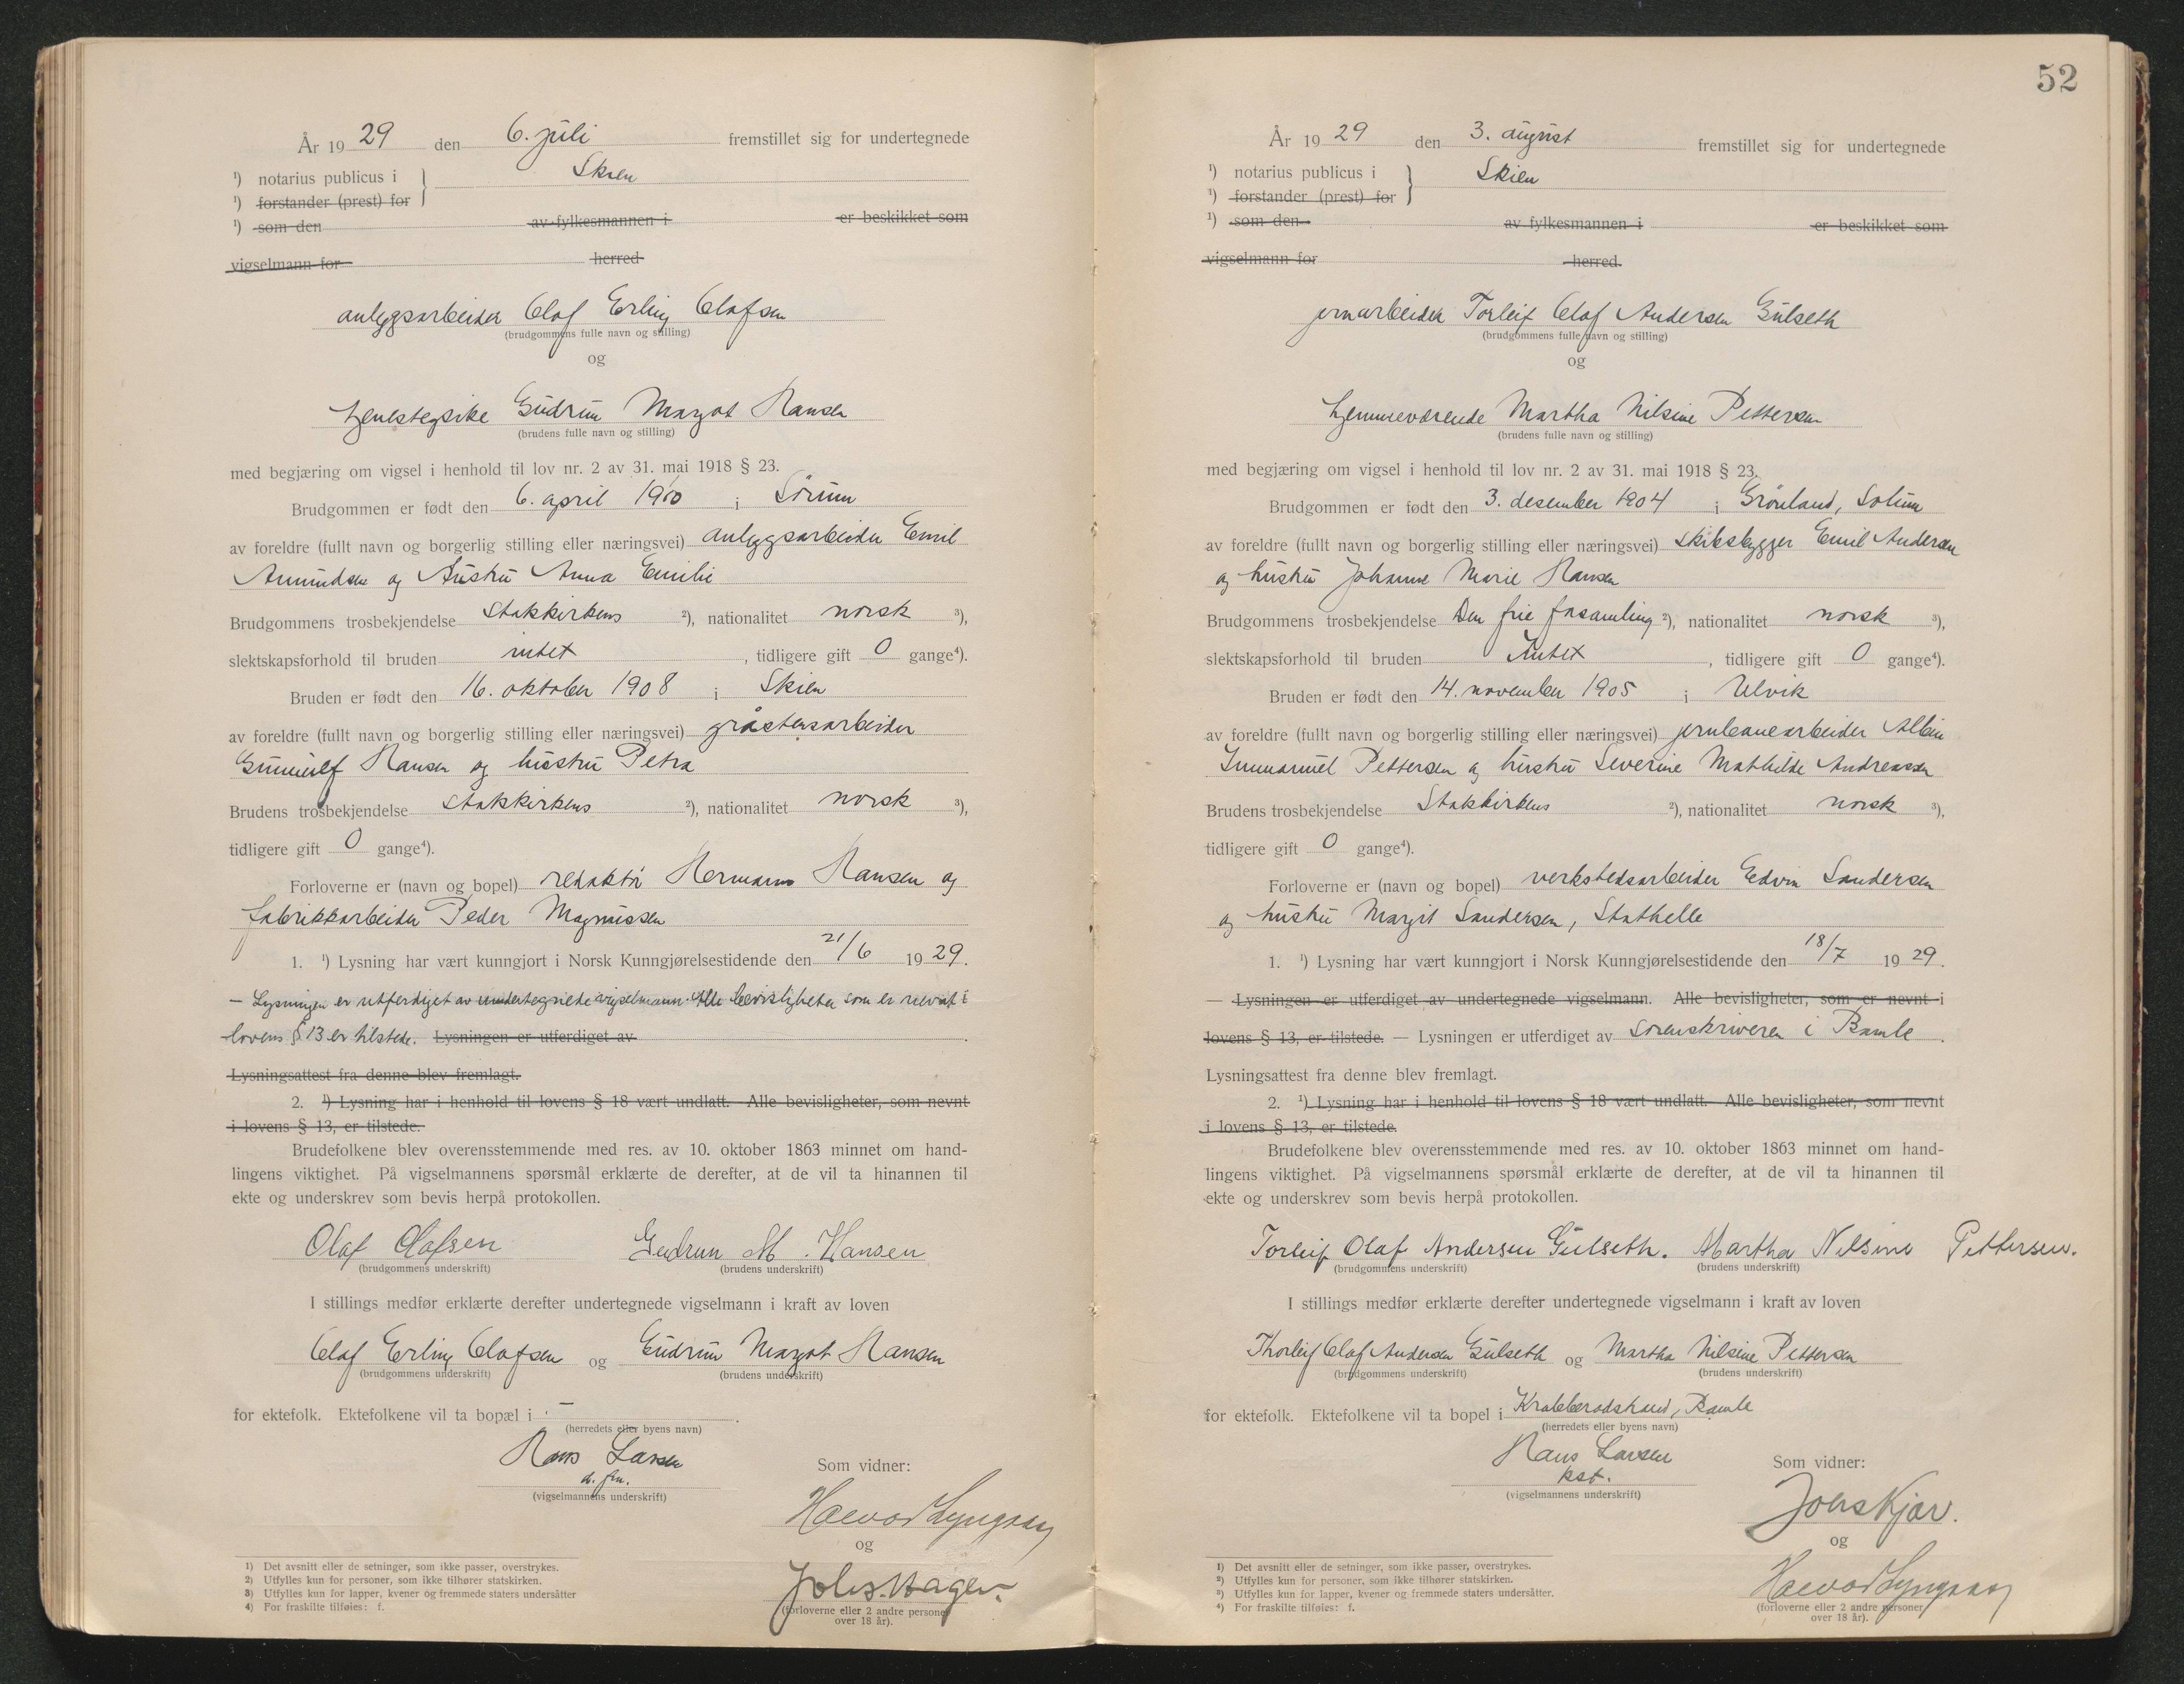 År 19 29 den 6. juli fremstillet sig for undertegnede
¹) notarius publicus i } Skien
¹) forstander (prest) for
¹) som den av fylkesmannen i er beskikket som
vigselmann for herred
anleggsarbeider Olaf Erling Olafsen
(brudgommens fulle navn og stilling)
og
tjenestepike Gudrun Margot Hansen
(brudens fulle navn og stilling)
med begjæring om vigsel i henhold til lov nr. 2 av 31. mai 1918 § 23.
Brudgommen er født den 6. april 1900 i Sørum
av foreldre (fullt navn og borgerlig stilling eller næringsvei) anleggsarbeider Emil
Amundsen og hustru Anna Emilie
Brudgommens trosbekjendelse Statskirkens ²), nationalitet norsk ³),
slektskapsforhold til bruden intet , tidligere gift 0 gange⁴).
Bruden er født den 16. oktober 1908 i Skien
av foreldre (fullt navn og borgerlig stilling eller næringsvei) gråstensarbeider
Gunnulf Hansen og hustru Petra
Brudens trosbekjendelse Statskirkens ²), nationalitet norsk ³),
tidligere gift 0 gange⁴).
Forloverne er (navn og bopel) redaktør Hermann Hansen og
fabrikkarbeider Peder Magnussen
1. ¹) Lysning har vært kunngjort i Norsk Kunngjørelsestidende den 21/6 19 29.
— Lysningen er utferdiget av undertegnede vigselmann. Alle bevisligheter som er nevnt i
lovens § 13 er tilstede. Lysningen er utferdiget av
Lysningsattest fra denne blev fremlagt.
2. ¹) Lysning har i henhold til lovens § 18 vært undlatt. Alle bevisligheter, som nevnt
i lovens § 13, er tilstede.
Brudefolkene blev overensstemmende med res. av 10. oktober 1863 minnet om hand-
lingens viktighet. På vigselmannens spørsmål erklærte de derefter, at de vil ta hinannen til
ekte og underskrev som bevis herpå protokollen.
Olaf Olafsen Gudrun M. Hansen
(brudgommens underskrift) (brudens underskrift)
I stillings medfør erklærte derefter undertegnede vigselmann i kraft av loven
Olaf Erling Olafsen og Gudrun Margot Hansen
(brudgommens underskrift) (brudens underskrift)
for ektefolk. Ektefolkene vil ta bopæl i —
(herredets eller byens navn)
Hans Larsen
(vigselmannens underskrift)
Som vidner:
Haavard Lyngaas
og
Johs. Hagen.
(forloverne eller 2 andre personer
over 18 år).
1) Det avsnitt eller de setninger, som ikke passer, overstrykes.
2) Utfylles kun for personer, som ikke tilhører statskirken.
3) Utfylles kun for lapper, kvener og fremmede staters undersåtter
4) For fraskilte tilføies: f.
52
År 19 29 den 3. august fremstillet sig for undertegnede
¹) notarius publicus i } Skien
¹) forstander (prest) for
¹) som den av fylkesmannen i er beskikket som
vigselmann for herred.
jernarbeider Torleif Olaf Andersen Gulseth
(brudgommens fulle navn og stilling)
og
hjemmeværende Martha Nilsine Pettersen
(brudens fulle navn og stilling)
med begjæring om vigsel i henhold til lov nr. 2 av 31. mai 1918 § 23.
Brudgommen er født den 3. desember 1904 i Grønland, Solum
av foreldre (fullt navn og borgerlig stilling eller næringsvei) skibsbygger Emil Andersen
og hustru Johanne Marie Hansen
Brudgommens trosbekjendelse Den frie forsamling ²), nationalitet norsk ³),
slektskapsforhold til bruden Intet , tidligere gift 0 gange⁴).
Bruden er født den 14. november 1905 i Ulvik
av foreldre (fullt navn og borgerlig stilling eller næringsvei) jernbanearbeider Albin
Immanuel Pettersen og hustru Severine Mathilde Andreassen
Brudens trosbekjendelse Statskirkens ²), nationalitet norsk ³),
tidligere gift 0 gange⁴).
Forloverne er (navn og bopel) verkstedsarbeider Edvin Sandersen
og hustru Margit Sandersen, Stathelle
1. ¹) Lysning har vært kunngjort i Norsk Kunngjørelsestidende den 18/7 19 29.
— Lysningen er utferdiget av undertegnede vigselmann. Alle bevisligheter, som er nevnt i
lovens § 13, er tilstede. — Lysningen er utferdiget av sorenskriveren i Bamle.
Lysningsattest fra denne blev fremlagt.
2. ¹) Lysning har i henhold til lovens § 18 vært undlatt. Alle bevisligheter, som nevnt
i lovens § 13, er tilstede.
Brudefolkene blev overensstemmende med res. av 10. oktober 1863 minnet om hand-
lingens viktighet. På vigselmannens spørsmål erklærte de derefter, at de vil ta hinannen til
ekte og underskrev som bevis herpå protokollen.
Torleif Olaf Andersen Gulseth. Martha Nilsine Pettersen.
(brudgommens underskrift) (brudens underskrift)
I stillings medfør erklærte derefter undertegnede vigselmann i kraft av loven
Thorleif Olaf Andersen Gulseth og Martha Nilsine Pettersen
(brudgommens underskrift) (brudens underskrift)
for ektefolk. Ektefolkene vil ta bopel i Krabberødstrand, Bamle
(herredets eller byens navn)
Hans Larsen
kst.
(vigselmannens underskrift)
Som vidner:
Johs Kjær.
og
Haavard Lyngaas
(forloverne eller 2 andre personer
over 18 år).
1) Det avsnitt eller de setninger, som ikke passer, overstrykes.
2) Utfylles kun for personer, som ikke tilhører statskirken.
3) Utfylles kun for lapper, kvener og fremmede staters undersåtter.
4) For fraskilte tilføies: f.